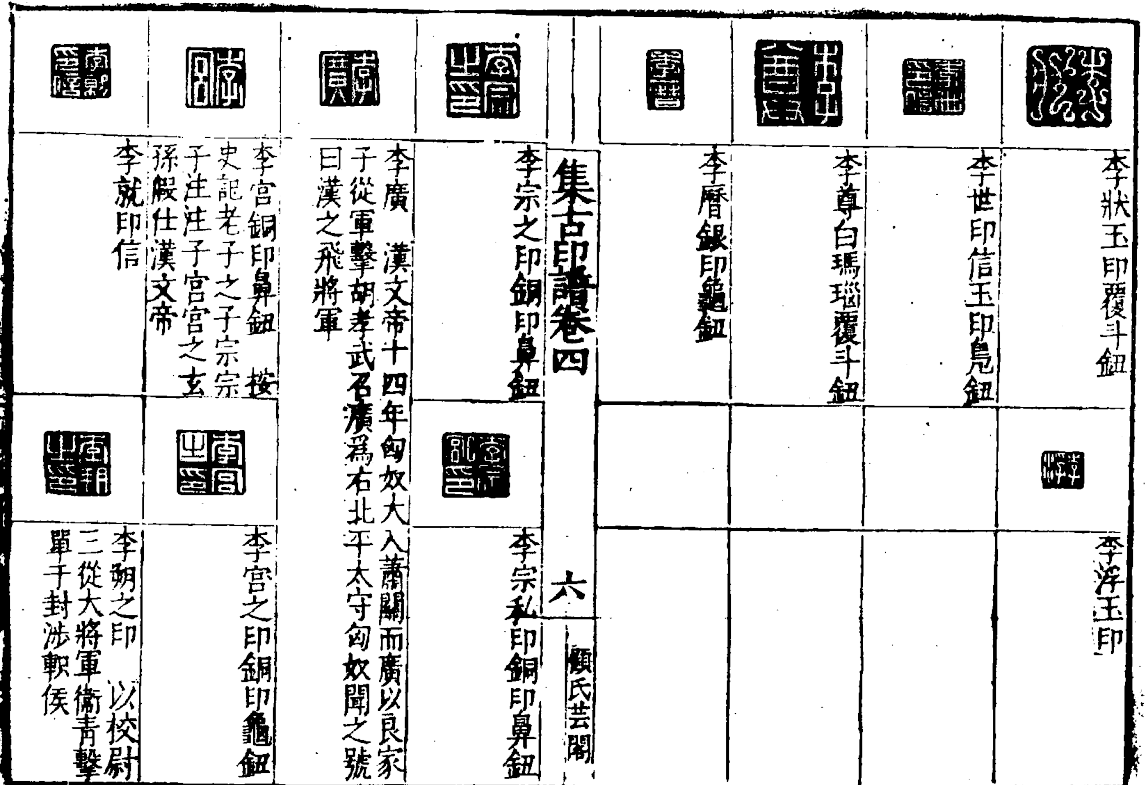 李狀玉印覆斗鈕
李浮玉印
李世印信玉印鳧鈕
李尊白瑪瑙覆斗鈕
李曆銀印龜鈕
集古印譜卷四
六
顧氏芸閣
李宗之印銅印鼻鈕
李宗私印銅印鼻鈕
李廣　漢文帝十四年匈奴大入蕭關而廣以良家
子從軍擊胡孝武名廣爲右北平太守匈奴聞之號
曰漢之飛將軍
李宫銅印鼻鈕　按
史記老子之子宗宗
子注注子宫宫之玄
孫假仕漢文帝
李宫之印銅印龜鈕
李就印信
李朔之印　以校尉
三從大將軍衞青擊
單于封涉軹侯